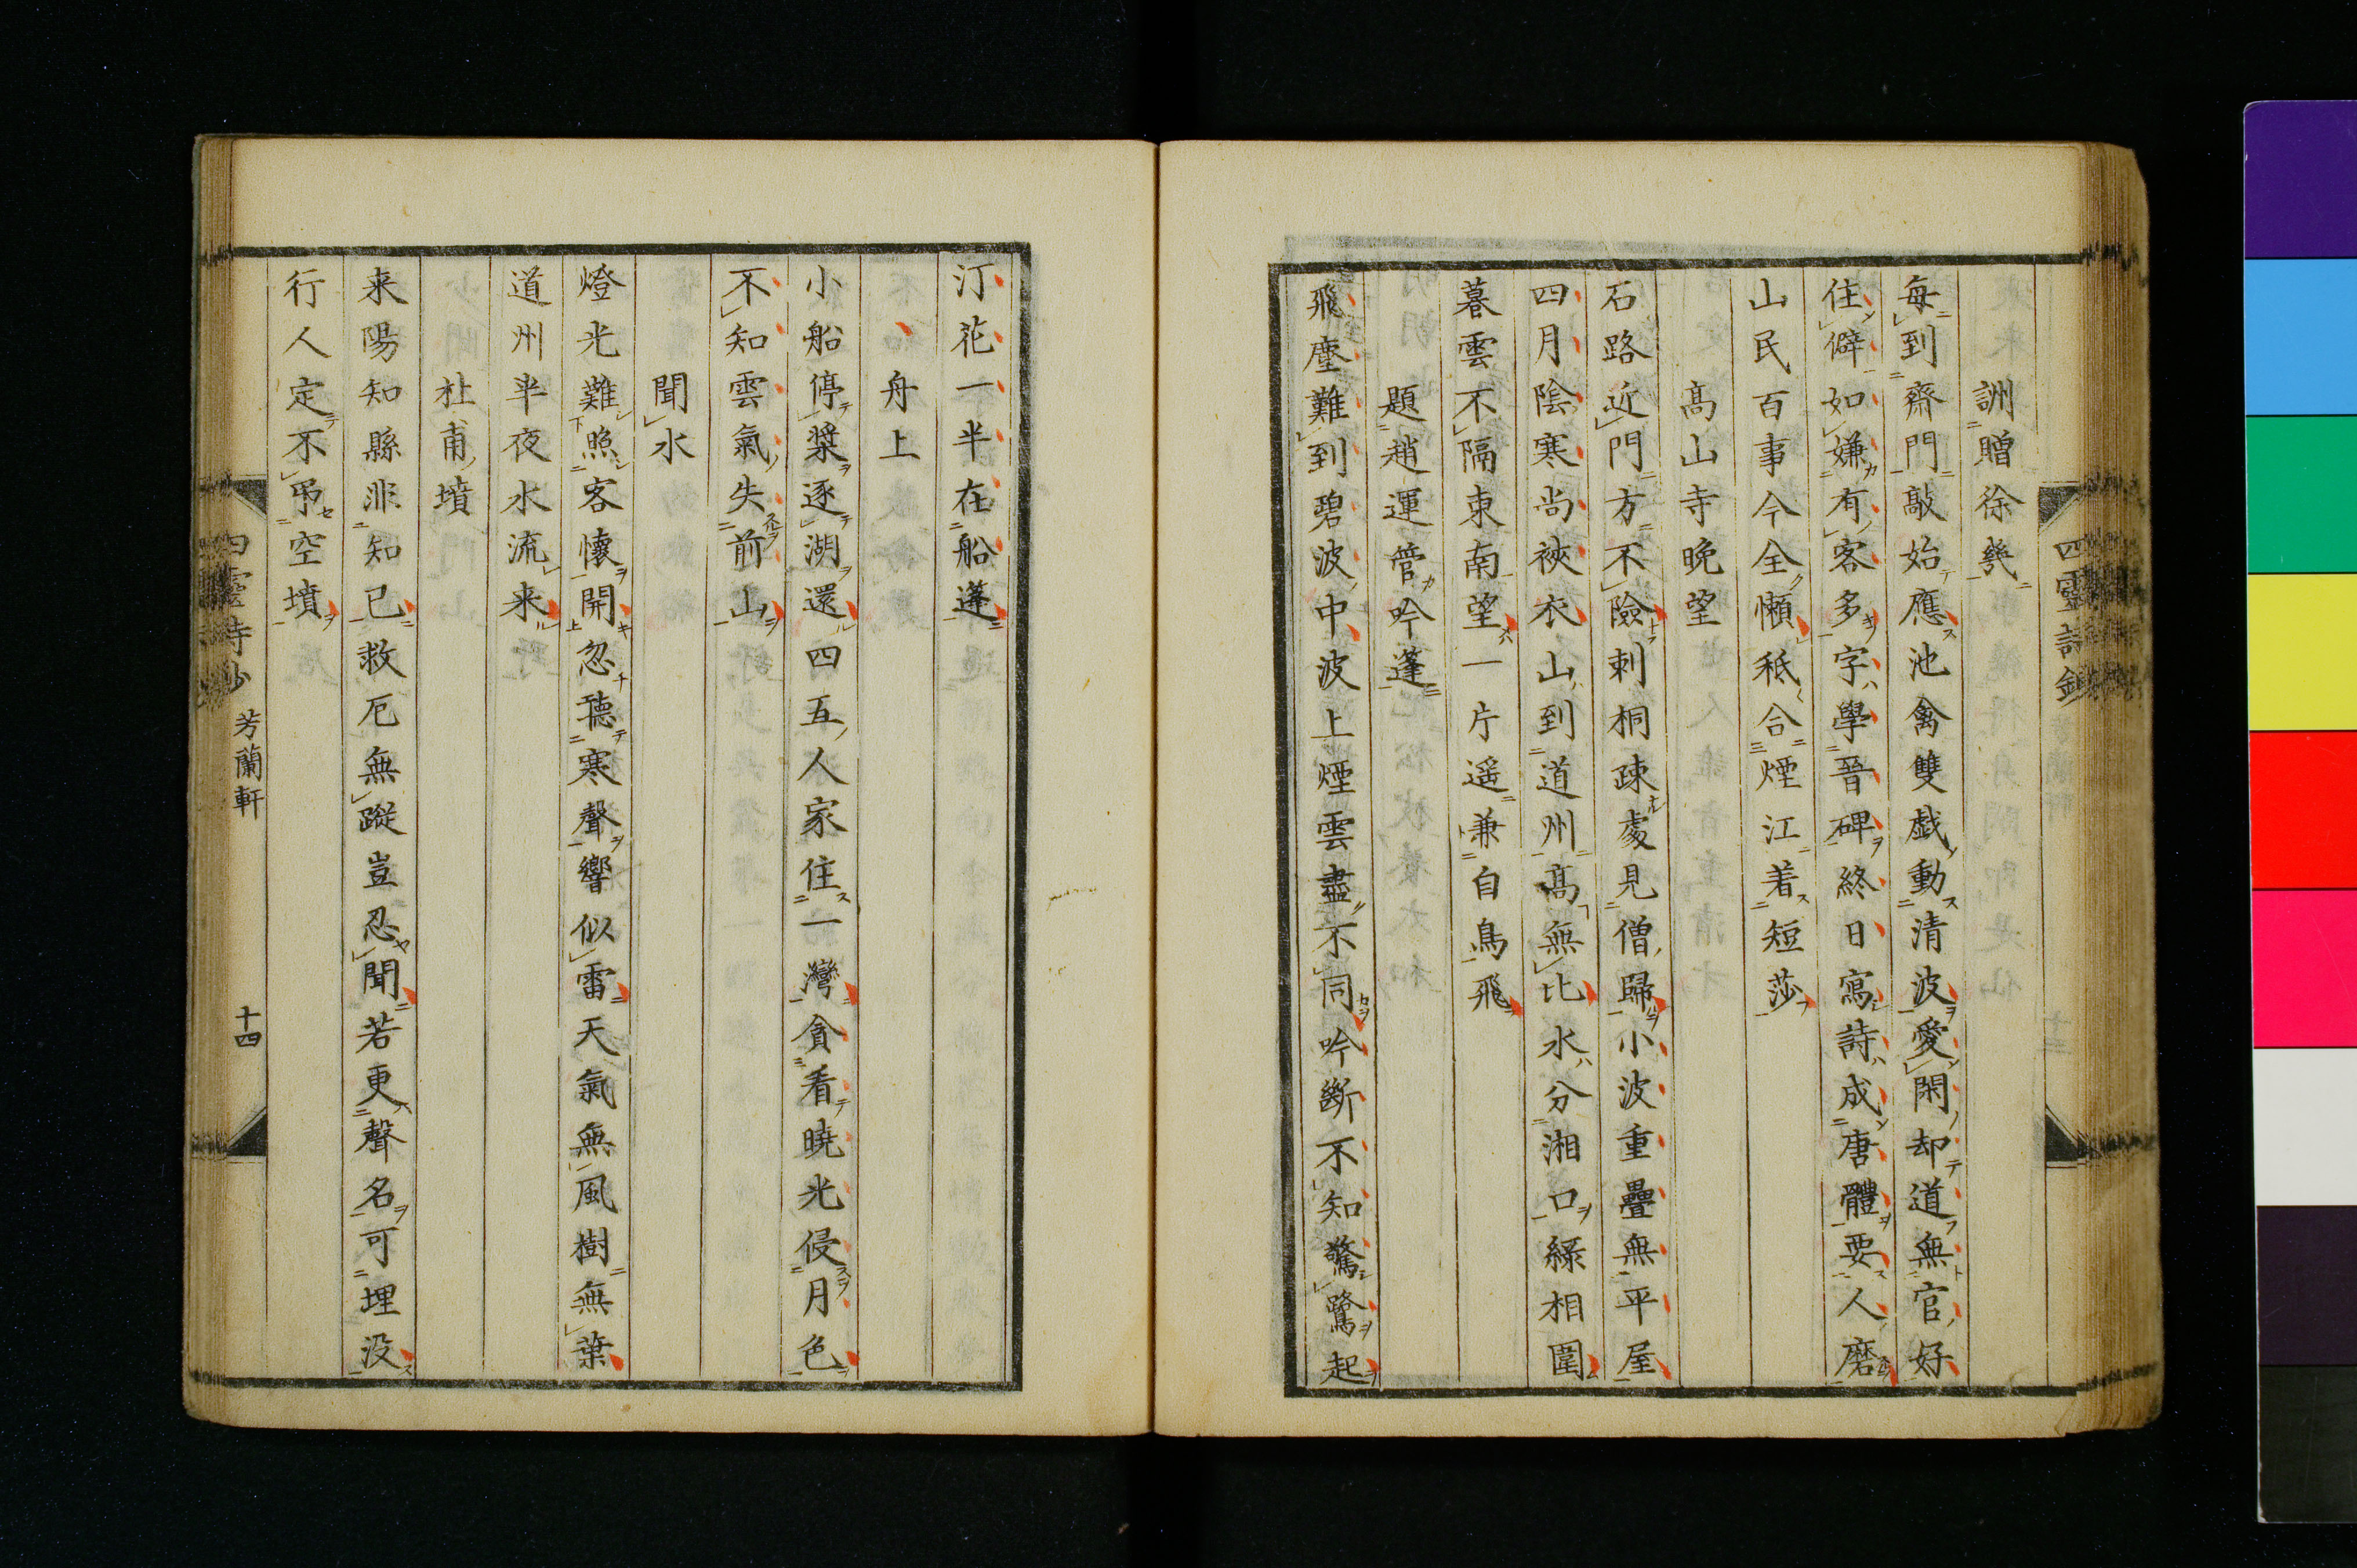 四靈詩鈔
詶贈徐㡬
每到齋門敲始應池禽雙戯動清波愛閑却道無官好
住僻如嫌有客多字學晉碑終日寫詩成唐體要人磨
山民百事今全懶秖合煙江着短莎
髙山寺晩望
石路近門方不險刺桐疎處見僧歸小波重疊無平屋
四月陰寒尚裌衣山到道州髙無比水分湘口綠相圍
暮雲不隔東南望一片遥兼自鳥飛
題趙運管吟蓬
飛塵難到碧波中波上煙雲盡不同吟斷不知驚鷺起
汀花一半在船蓬
舟上
小船停槳逐湖還四五人家住一灣貪看曉光侵月色
不知雲氣失前山
聞水
燈光難照客懷開忽聴寒聲響似雷天氣無風樹無葉
道州半夜水流来
杜甫墳
来陽知縣非知已救厄無蹤豈忍聞若更聲名可埋没
行人定不弔空墳
四靈詩鈔 芳蘭軒 十四